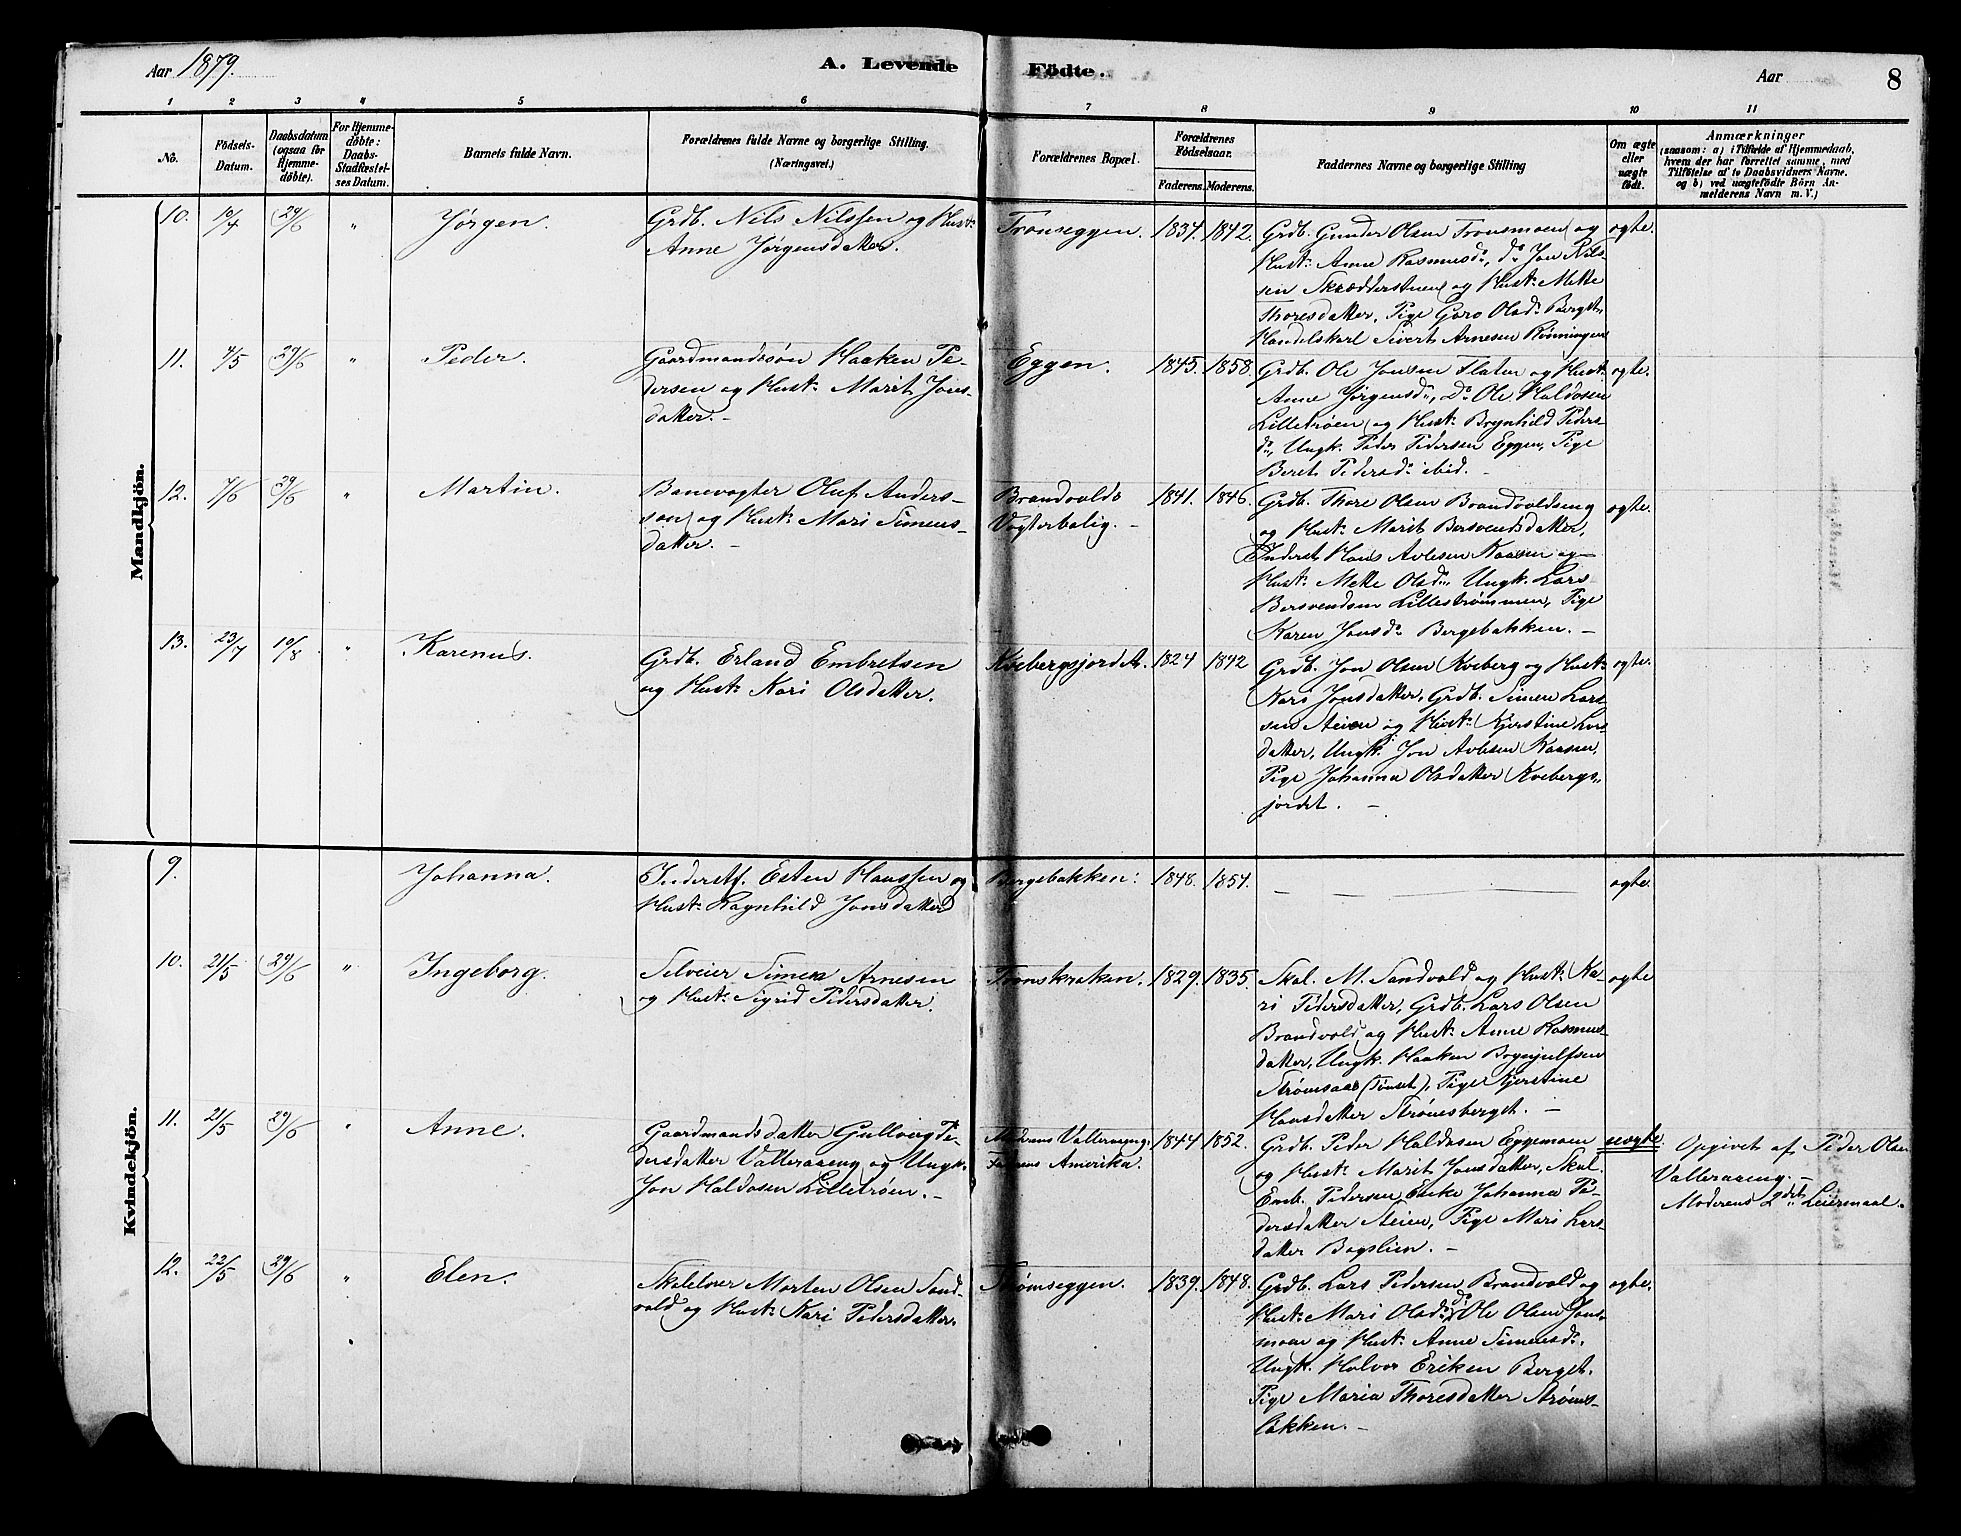 Aar 1879.
A. Levende Födte.
Aar
8
1 2 3 4 5 6 7 8 9 10 11
No.
Födsels-
Datum.
Daabsdatum
(ogsaa for
Hjemme-
døbte).
For Hjemme-
døbte:
Daabs-
Stadfæstel-
ses Datum.
Barnets fulde Navn.
Forældrenes fulde Navne og borgerlige Stilling.
(Næringsvei.)
Forældrenes Bopæl.
Forældrenes
Födselsaar.
Faderens. Moderens.
Faddernes Navne og borgerlige Stilling
Om ægte
eller
uægte
født.
Anmærkninger
(saasom: a) i Tilfælde af Hjemmedaab,
hvem der har forrettet samme, med
Tilföielse af to Daabsvidners Navne.
og b) ved uægtefödte Börn An-
melderens Navn m. V.)
Mandkjön.
10. 19/4 29/6 " Jørgen.
Grdb. Nils Nilssen og Hust:
Anne Jørgensdatter.
Tronseggen. 1834. 1842.
Grdb. Gunder Olsen Tronsmoen og
Hust: Anne Rasmusd:, do Jon Nils-
sen Skrædderstuen og Hust: Mette
Thoresdatter, Pige Goro Olsd: Berget,
Handelskarl Sivert Arnesen Rønningen
ægte.
11. 4/5 29/6 " Peder.
Gaardmandssøn Haaken Pe-
dersen og Hust: Marit Jons-
datter. –
Eggen. 1845. 1858.
Grdb. Ole Jonsen Flaten og Hust:
Anne Jørgensd:, Do Ole Haldosen
Lilletrøen og Hust: Brynhild Peders-
d:, Ungk. Peder Pedersen Eggen, Pige
Beret Pedersd: ibid. –
ægte.
12. 7/6 29/6 " Martin.
Banevogter Oluf Anders-
son og Hust: Mari Simens-
datter. –
Brandvolds
Vogterbolig. –
1841. 1846.
Grdb. Thore Olsen Brandvoldseng
og Hust: Marit Bersvendsdatter,
Inderst Hans Avlesen Kaasen og
Hust: Mette Olsd:, Ungk. Lars
Bersvendsen Lillestrømmen, Pige
Karen Jonsd: Bergebakken. –
ægte.
13. 23/7 10/8 " Karenus.
Grdb. Erland Embretsen
og Hust: Kari Olsdatter.
Kvebergsjordet. 1824 1842
Grdb. Jon Olsen Kveberg og Hust:
Kari Jonsdatter, Grdb. Simen Lars-
sen Steien og Hust: Kjerstine Lars-
datter, Ungk. Jon Avlesen Kaasen,
Pige Johanna Olsdatter Kvebergs-
jordet. –
ægte.
Kvindekjön.
9. Johanna.
Inderstf. Esten Hanssen og
Hust: Ragnhild Jonsdatter
Bergebakken: 1848. 1854. – –
ægte.
10. 21/5 29/6 " Ingeborg.
Selveier Simen Arnesen
og Hust: Sigrid Pedersdatter.
Tronskraken. 1829. 1835.
Skol. M. Sandvold og Hust: Ka-
ri Pedersdatter, Grdb. Lars Olsen
Brandvold og Hust: Anne Rasmus-
datter, Ungk. Haaken Brynjulfsen
Strømsaas (Tønset), Pige Kjerstine
Hansdatter Strømsberget. –
ægte
11. 21/5 29/6 " Anne.
Gaardmandsdatter Gullverg Pe-
dersdatter Valleraaeng og Ungk.
Jon Haldosen Lilletrøen. –
Moderens Valleraaeng,
Faderens Amerika.
1844 1852.
Grdb. Peder Haldosen Eggemoen
og Hust: Marit Jonsdatter, Skol.
Emb. Pedersen, Enke Johanna Pe-
dersdatter Steien, Pige Mari Lars-
datter Bagslien. –
uægte.
Opgivet af Peder Olsen
Valleraaeng. –
Moderens 2det Leiermaal.
12. 22/5 29/6 " Elen.
Skolelærer Morten Olsen Sand-
vold og Hust: Kari Pedersdatter.
"
Strømseggen. 1839. 1848.
Grdb. Lars Pedersen Brandvold og
Hust: Mari Olsd:, do Ole Olsen Jons-
moen og Hust: Anne Simensd:,
Ungk. Halvor Eriksen Berget.
Pige Maria Thoresdatter Strøms-
bakken. –
ægte.